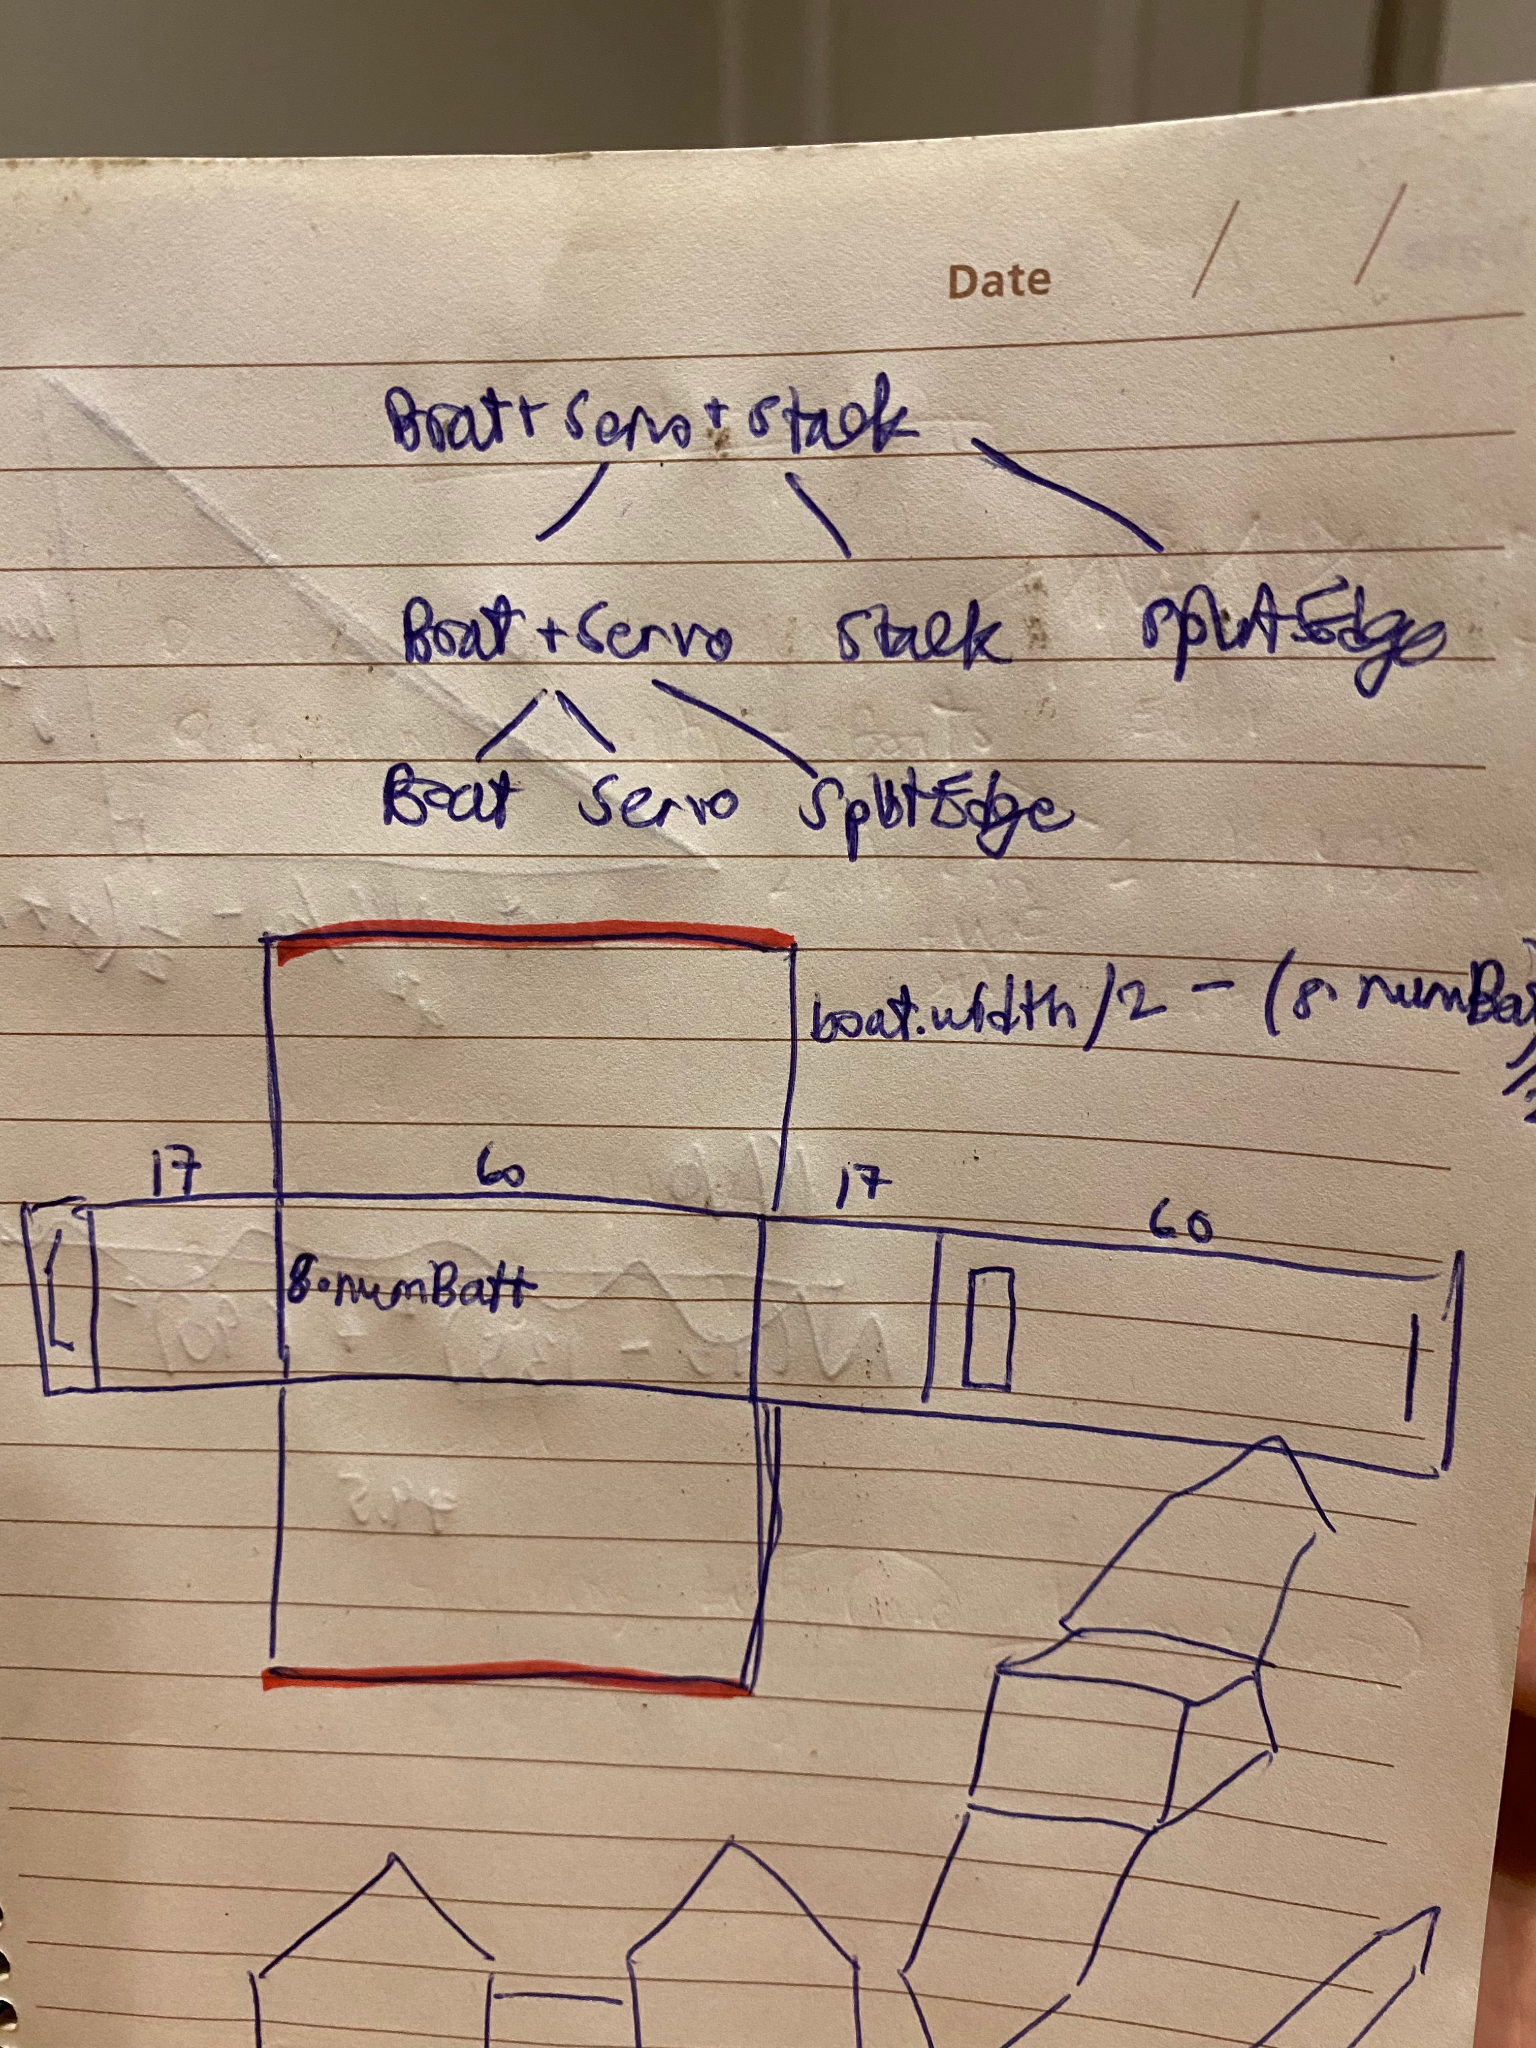 Date / /
Boat + Servo + Stack
Boat + Servo Stack SplitEdge
Boat Servo SplitEdge
boat.width/2 - (8. numBat
/2
17 60 17
60
8.numBatt